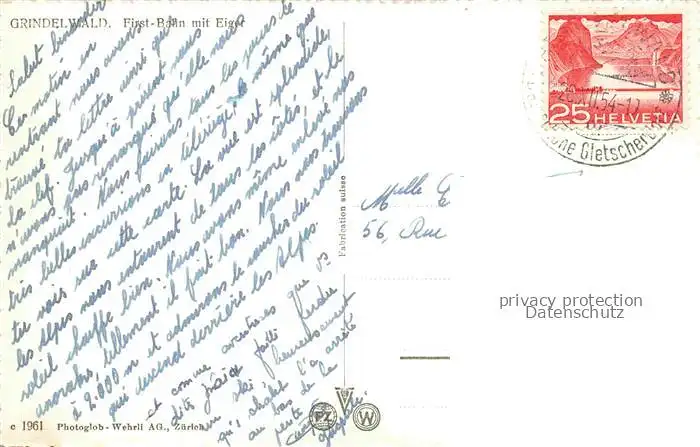 GRINDELWALD. First-Bahn mit Eiger
Salut
Ce matin en
rentrant nous avons
trouvé ta lettre ainsi que
la clef. Jusqu'à présent nous
n'avons pas remarqué qu'elle nous
manquait. Nous faisons tous les jours de
très belles excursions en télésiège, le même que
tu vois sur cette carte. La vue est splendide,
les Alpes nous entourent de tous les côtés, et le
soleil chauffe bien. Nous avons même enlevé nos
anoraks, tellement il fait bon. Nous nous trouvons
à 2.000 m et admirons le coucher du soleil
qui descend derrière les Alpes.
et comme aventures que
dites j'ai failli perdre
un ski, heureusement
qu'il s'est arrêté
au bas de la
pente
Fabrication suisse
Mlle
56, Rue
25 HELVETIA
54
Gletscher
privacy protection
Datenschutz
c 1961 Photoglob-Wehrli AG., Zürich
PZ
V
W